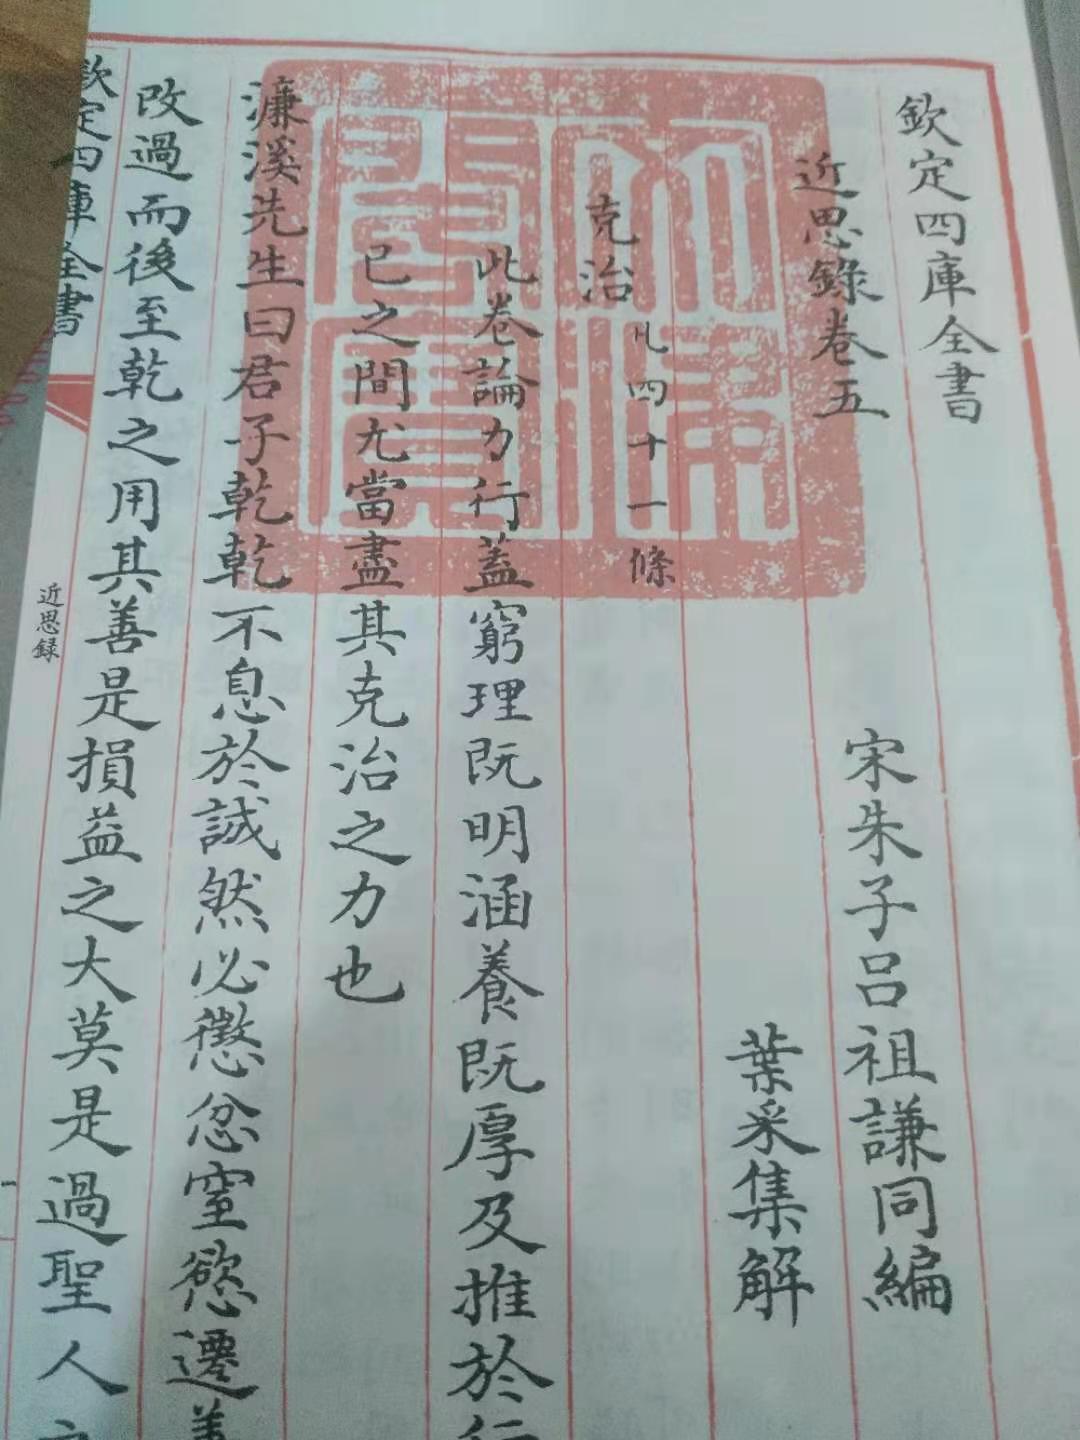 欽定四庫全書
近思錄卷五
宋朱子呂祖謙同編
葉采集解
克治凡四十一條
此卷論力行蓋窮理既明涵養既厚及推於行
已之間尤當盡其克治之力也
濂溪先生曰君子乾乾不息於誠然必懲忿窒慾遷善
改過而後至乾之用其善是損益之大莫是過聖人之
欽定四庫全書
近思録